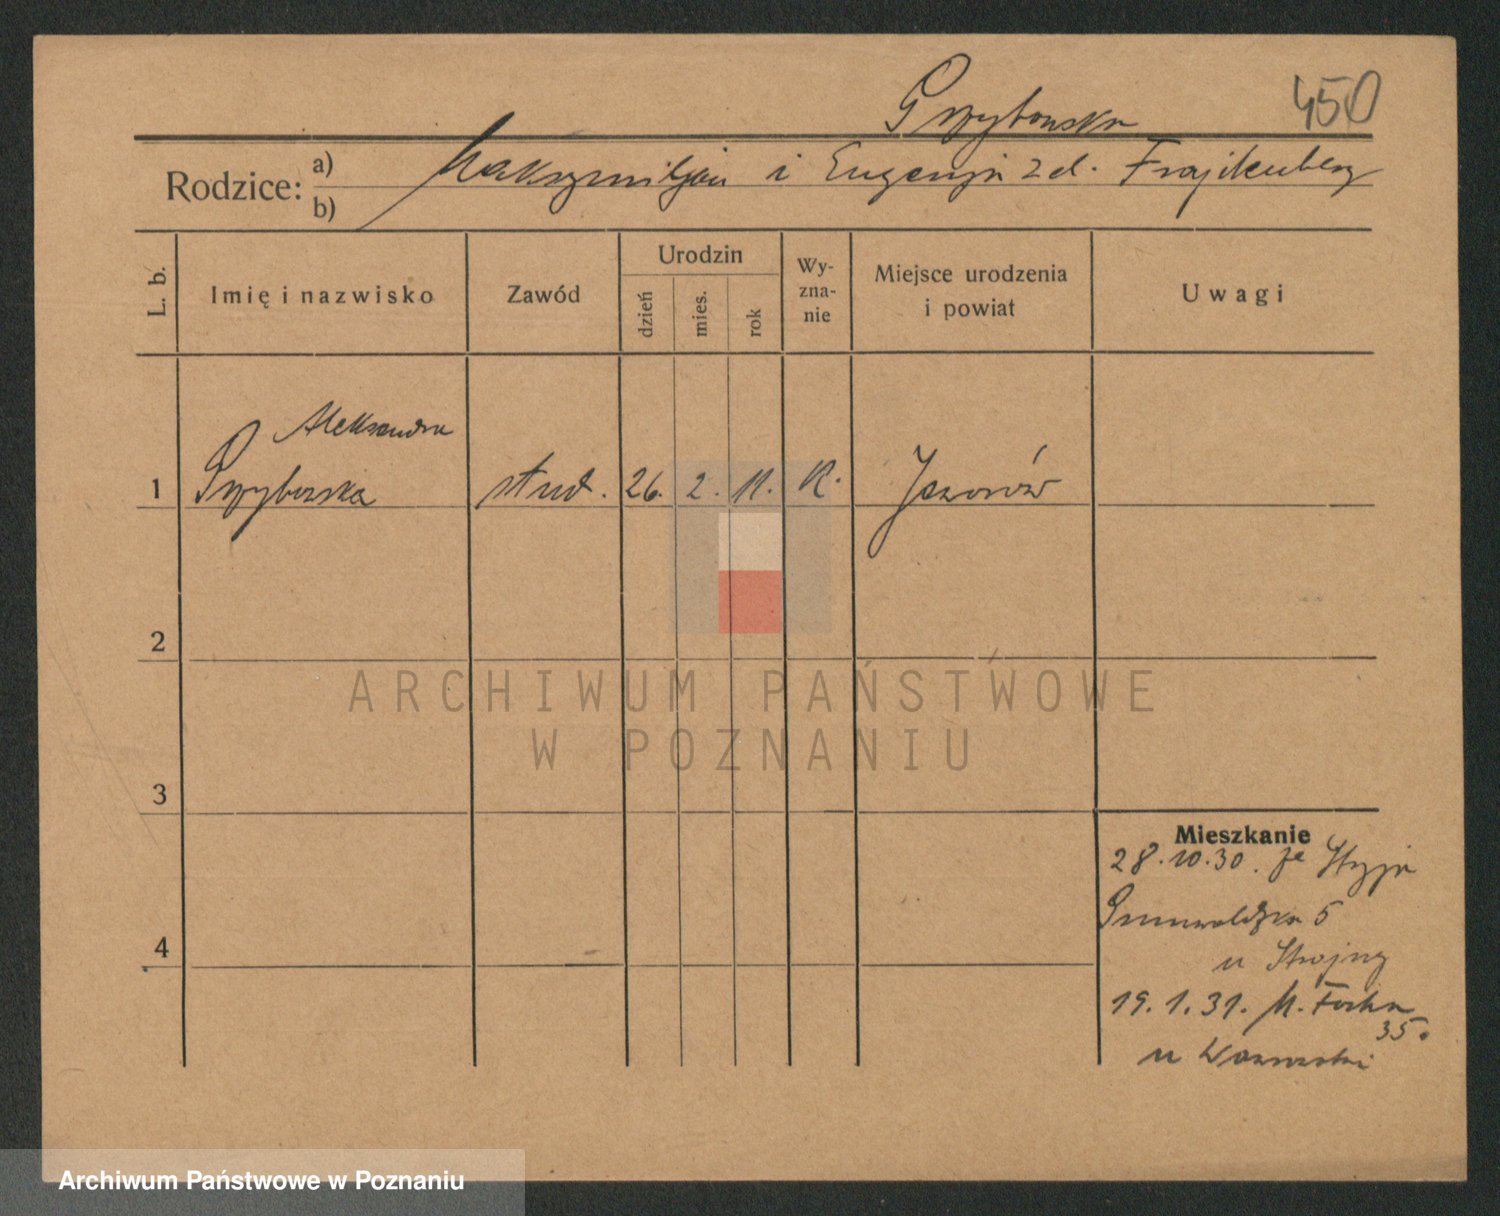 Grzybowska
450
Rodzice: a) b) Maksymiljan i Eugenja z d.
L. b.
Imię i nazwisko
Zawód
Urodzin
dzień
mies.
rok
Wy-
zna-
nie
Miejsce urodzenia
i powiat
Uwagi
Aleksandra
1 Grzybowska stud. 26. 2. 11. R. Jaworów
2
3
4
Mieszkanie
28.10.30.
Grunwaldzka 5
u Strojny
19.1.31. M. Focha
35.
u
ARCHIWUM PAŃSTWOWE
W POZNANIU
Archiwum Państwowe w Poznaniu